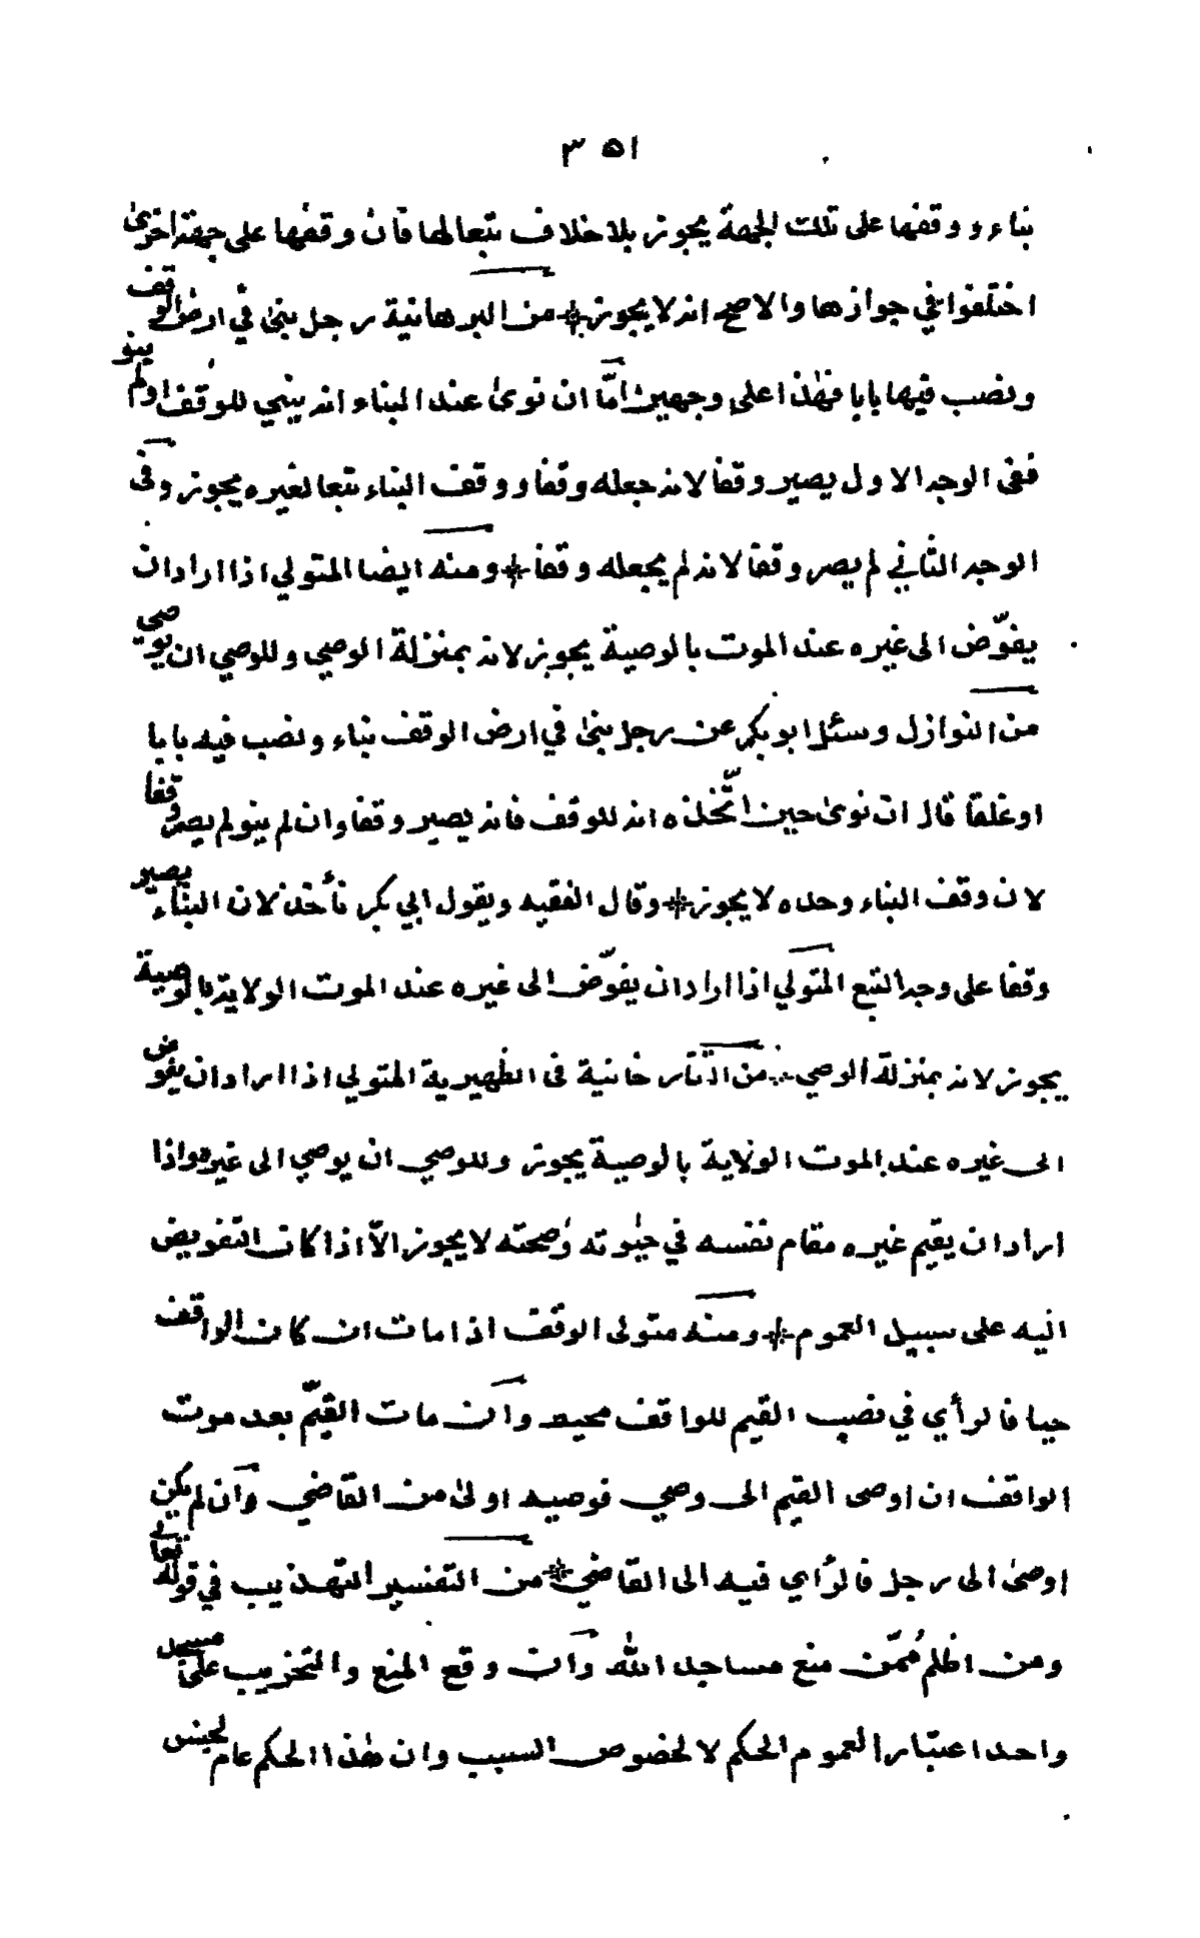 ٣٥١
بناء ووقفها على تلك الجهة يجوز بلا خلاف تبعا لها فان وقفها على جهة اخرى
اختلفوا في جوازها والاصح انه لا يجوز * من البرهانية رجل بنى في ارض الوقف
ونصب فيها بابا فهذا على وجهين امّا ان نوى عند البناء انه يبني للوقف او لم ينو
ففى الوجه الاول يصير وقفا لانه جعله وقفا ووقف البناء تبعا لغيره يجوز وفى
الوجه الثاني لم يصر وقفا لانه لم يجعله وقفا * ومنه ايضا المتولي اذا اراد ان
يفوّض الى غيره عند الموت بالوصية يجوز لانه بمنزلة الوصي وللوصي ان يوصي
من النوازل وسئل ابو بكر عن رجل بنى في ارض الوقف بناء ونصب فيه بابا
او غلقا قال ان نوى حين اتّخذه انه للوقف فانه يصير وقفا وان لم ينو لم يصر وقفا
لان وقف البناء وحده لا يجوز * وقال الفقيه وبقول ابي بكر نأخذ لان البناء يصير
وقفا على وجه التبع المتولي اذا اراد ان يفوّض الى غيره عند الموت الولاية بالوصية
يجوز لانه بمنزلة الوصي * من التاتارخانية فى الظهيرية المتولى اذا اراد ان يفوض
الى غيره عند الموت الولاية بالوصية يجوز وللوصي ان يوصي الى غيره واذا
اراد ان يقيم غيره مقام نفسه في حيوته وصحته لا يجوز الّا اذا كان التفويض
اليه على سبيل العموم * ومنه متولى الوقف اذا مات ان كان الواقف
حيا فالرأي في نصب القيم للواقف محيط وان مات القيّم بعد موت
الواقف ان اوصى القيم الى وصي فوصيه اولى من القاضي وان لم يكن
اوصى الى رجل فالرأي فيه الى القاضي * من التفسير التهذيب في قوله تعالى
ومن اظلم ممّن منع مساجد الله وان وقع المنع والتخريب على مسجد
واحد اعتبار العموم الحكم لا لخصوص السبب وان هذا الحكم عام لجنس